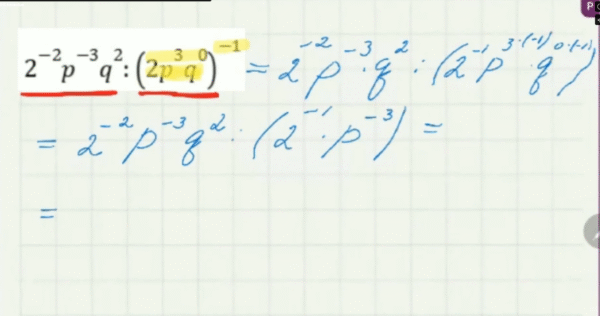 2⁻²p⁻³q² : (2p³q⁰)⁻¹ = 2⁻² p⁻³ · q² : (2⁻¹ p³·⁽⁻¹⁾ · q⁰·⁽⁻¹⁾)
= 2⁻² p⁻³ q² : (2⁻¹ · p⁻³) =
=